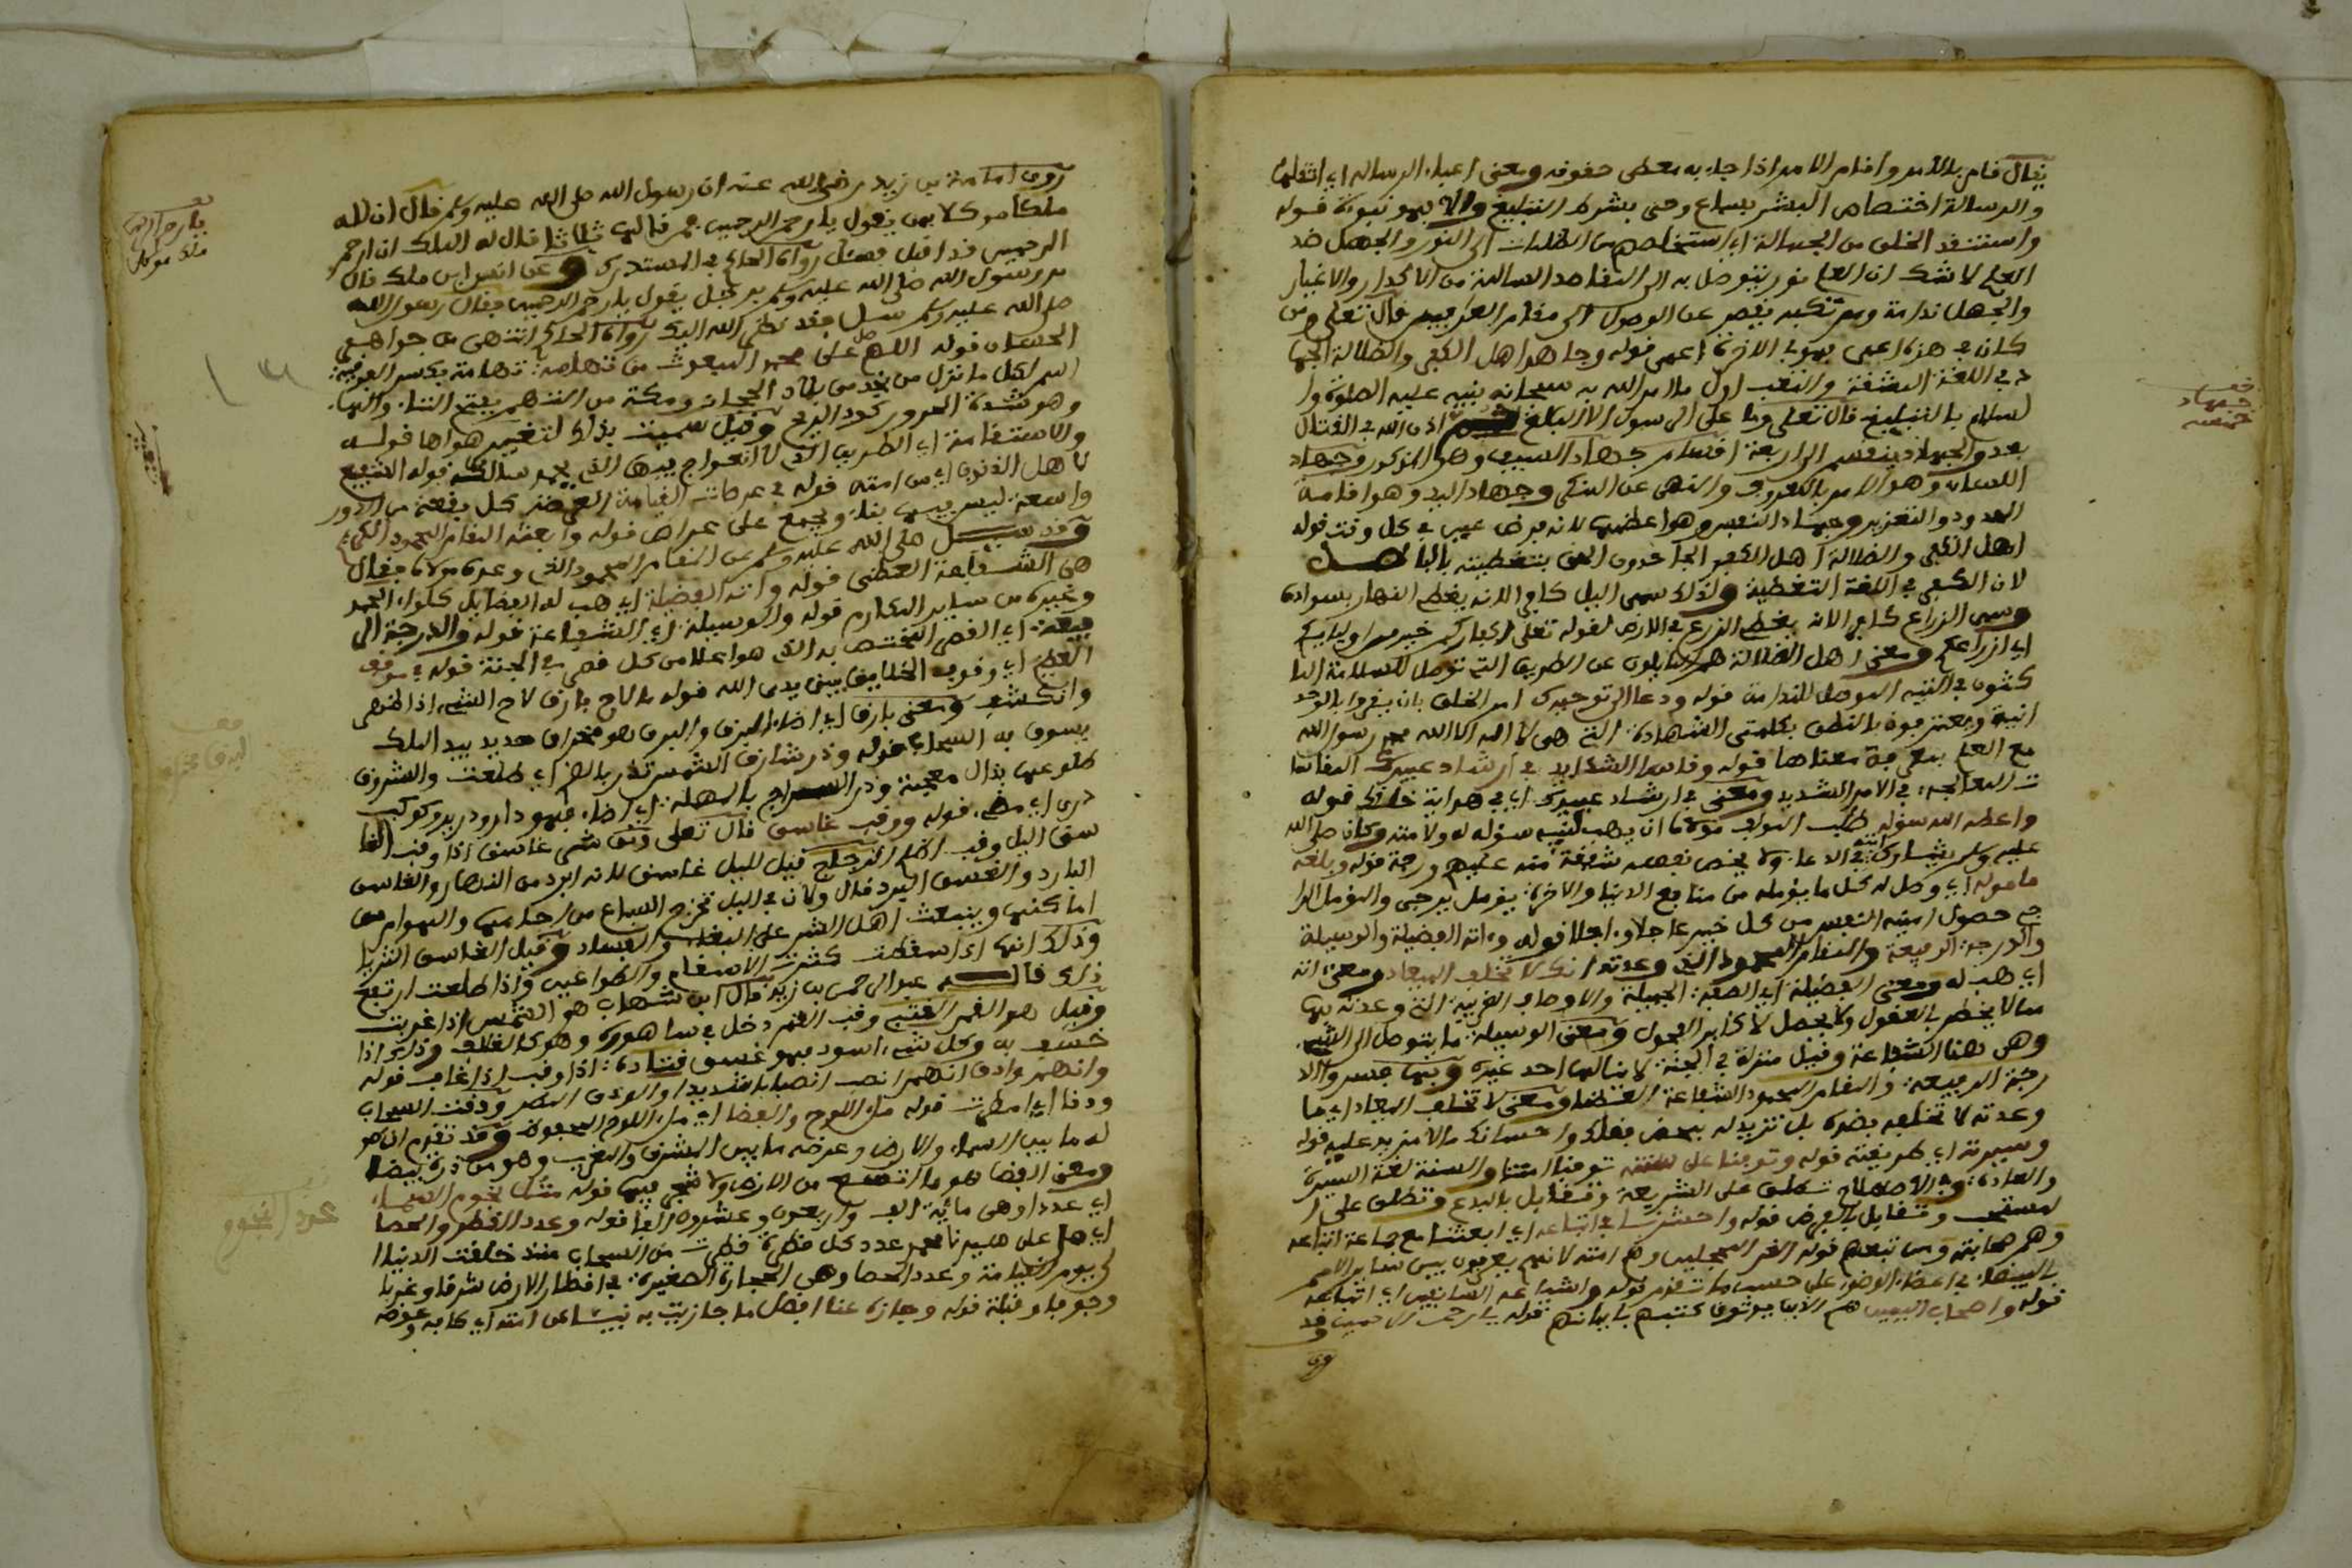 يقال قام بالامر واقام الامر اذا جاء به معطى حقوقه ومعنى اعباء الرسالة اي اثقالها
والرسالة اختصاص البشر بسماع وحي بشرط التبليغ والا فهو نبوة قوله
واستنقذ الخلق من الجهالة اي استخلصهم من الظلمات الى النور والجهل ضد
العلم لا شك ان العلم نور يتوصل به الى المقاصد السالمة من الاكدار والاغيار
والجهل ندامة ومرتكبه يقصر عن الوصول الى مقام العارفين قال تعلى ومن
كان في هذه اعمى فهو في الاخرة اعمى قوله وجاهد اهل الكفر والضلالة الجها
د في اللغة المشقة والتعب اول ما امر الله به سبحانه نبيه عليه الصلوة وا
لسلام بالتبليغ قال تعلى وما على الرسول الا البلاغ ثم اذن الله في القتال
بعد والجهاد ينقسم الى اربعة اقسام جهاد السيف وهو المذكور وجهاد
اللسان وهو الامر بالمعروف والنهي عن المنكر وجهاد اليد وهو اقامة
الحدود والتعزير وجهاد النفس وهو اعظمها لانه فرض عين في كل وقت قوله
اهل الكفر والضلالة اهل الكفر الجاحدون الحق بتغطيته بالباطل
لان الكفر في اللغة التغطية ولذلك سمي اليل كافر الانه يغطي النهار بسواده
وسمي الزراع كافر الانه يغطي الزرع في الارض لقوله تعلى اكفاركم خير من اوليكم
اي ازراعكم ومعنى اهل الضلالة هم المايلون عن الطريق التي توصل للسلامة الما
كثون في التيه الموصل للندامة قوله ودعا الى توحيدك امر الخلق بان يقروا بالوحد
انية ويعترفوا بالنطق بكلمتي الشهادة التي هي لا اله الا الله محمد رسول الله
مع العلم بمعرفة معناها قوله وقاسا الشدايد في ارشاد عبيدك المقاسا
ت المعالجة في الامر الشديد ومعنى في ارشاد عبيدك اي في هداية خلقك قوله
واعطه اللهم سؤله طلب المولف مولانا ان يهب لنبيه سؤله له ولامته وكان صلى الله
عليه وسلم يشارك امته في الدعا ولا يخص نفسه شفقة منه عليهم ورحمة قوله وبلغه
مأموله اي وصل له كل ما يؤمله من منافع الدنيا والاخرة يؤمل يرجى والمؤمل الرا
جي حصول امنية النفس من كل خير عاجلا واجلا قوله واته الفضيلة والوسيلة
والدرجة الرفيعة والمقام المحمود الذي وعدته انك لا تخلف الميعاد ومعنى اته
اي هب له ومعنى الفضيلة اي الصفة الجميلة والاوصاف الغريبة التي وعدته بها
مما لا يخطر في العقول ولا يحصل لاكابر الفحول ومعنى الوسيلة ما يتوصل الى الشيء
وهي هنا الشفاعة وقيل منزلة في الجنة لا ينالها احد غيره وبها فسروا الد
رجة الرفيعة والمقام المحمود الشفاعة العظما ومعنى لا تخلف الميعاد اي ما
وعدته لا تخلفه بضده بل تزيد له بمحض فضلك واحسانك ما لا مزيد عليه قوله
وسيرته اي طريقته قوله وتوفنا على سنته توفنا امتنا والسنة لغة السيرة
والعادة وفي الاصطلاح تطلق على الشريعة وتقابل بالبدع وتطلق على ا
لمستحب وتقابل بالفرض قوله واحشرنا في اتباعه اي ابعثنا مع جماعة اتباعه
وهم صحابته ومن تبعهم قوله الغر المحجلين وهم امته لانهم يعرفون بين ساير الامم
بالبيضاء في اعضاء الوضوء على حسب ما تقدم قوله واشياعه السابقين اي اتباعه
قوله واصحاب اليمين هم الذين يوتون كتبهم بايمانهم قوله يا ارحم الراحمين وقد
روى
جهاد
خمسة
روى امامة بن زيد رضي الله عنه ان رسول الله صلى الله عليه وسلم قال ان لله
ملكا موكلا بمن يقول يا ارحم الرحمين فمن قالها ثلاثا قال له الملك ان ارحم
الرحمين قد اقبل فسئل رواه الحاكم في المستدرك وعن انس ابن ملك قال
مر رسول الله صلى الله عليه وسلم برجل يقول يا ارحم الرحمين فقال رسول الله
صلى الله عليه وسلم سل فقد نظر الله اليك رواه الحاكم انتهى من جواهر
الحسان قوله اللهم صل على محمد المبعوث من تهامة تهامة بكسر الفوقية
اسم لكل ما نزل من نجد من بلاد الحجاز ومكة من التهم بفتح التاء والهاء
وهو شدة الحر وركود الريح وقيل سميت بذلك لتغيير هواها قوله
والاستقامة اي الطريق التي لا اعوجاج فيها التي يحمد سالكها قوله الشفيع
لاهل الذنوب اي من امته قوله في عرصات القيامة العرصة كل بقعة من الدور
واسعة ليس فيها بناء ويجمع على عراص قوله وابعثه المقام المحمود
وقد سئل صلى الله عليه وسلم عن المقام المحمود الذي وعده مولاه فقال
هي الشفاعة العظمى قوله واته الفضيلة اي هب له الفضايل كلواء الحمد
وغيره من ساير المكارم قوله والوسيلة اي الشفاعة قوله والدرجة الر
فيعة اي القصر المختص به الذي هو اعلا من كل قصر في الجنة قوله في موقف
العظيم اي وقوف الخلايق بين يدي الله قوله ما لاح بارق لاح الشيء اذا ظهر
وانكشف ومعنى بارق اي اضاء البرق والبرق هو مخراق حديد بيد الملك
يسوق به السحاب قوله وذر شارق الشمس تذر بالضم اي طلعت والشروق
طلوعها بذال معجمة ودر السراج بالمهملة اي اضاء فهو دار ودرير وكوكب
دري اي مضيء قوله ووقب غاسق قال تعلى ومن شر غاسق اذا وقب الغا
سق اليل وقب اظلم الزجاج قيل لليل غاسق لانه ابرد من النهار والغاسق
البارد والغسق البرد قال ولان في اليل تخرج السباع من اجامها والهوام من
اماكنها وينبعث اهل الشر على العبث والفساد وقيل الغاسق الثريا
وذلك انها اذا سقطت كثرت الاسقام والطواعين واذا طلعت ارتفع
ذلك قاله عبد الرحمن بن زيد قال ابن شهاب هو الشمس اذا غربت
وقيل هو القمر القتبي وقب القمر دخل في ساهوره وهو كالغلاف وذلك اذا
خسف به وكل شيء اسود فهو غسق قتادة اذا وقب اذا غاب قوله
وانهمر وادق انهمر انصب انصبابا شديدا والودق المطر ودقت السماء
ودقا اي امطرت قوله ملء اللوح والفضا اي ملء اللوح المحفوظ وقد تقدم ان طو
له ما بين السماء والارض وعرضه ما بين المشرق والمغرب وهو من درة بيضا
ومعنى الفضا هو ما اتسع من الارض ولا شجر فيها قوله مثل نجوم السماء
اي عددا وهي مائة الف واربعون وعشرون الفا قوله وعدد القطر والحصا
اي صل على سيدنا محمد عدد كل قطرة قطرت من السحاب منذ خلقت الدنيا ا
لى يوم القيامة وعدد الحصا وهي الحجارة الصغيرة في اقطار الارض شرقا وغربا
وجوفا وقبلة قوله وجازه عنا افضل ما جازيت به نبيئا عن امته اي كافه وعوضه
يا ارحم الراحمين
ملك موكل
البرق مخراق
عدد النجوم